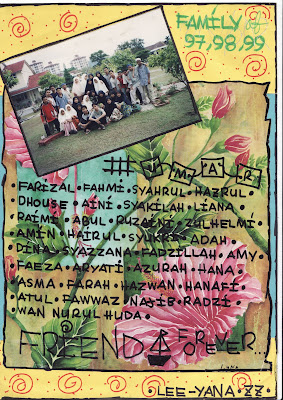 FAMILY of
97,98,99
# J M A R
• FARIZAL • FAHMI • SYAHRUL • HAZRUL •
DHOUSE • AINI • SYAKILAH • LIANA •
RAIMI • ABUL • RUZAINI • ZULHELMI •
AMIN • HAIRUL • SYUKRI • ADAH •
DINA • SYAZZANA • FADZILLAH • AMY •
FAEZA • ARYATI • AZURAH • HANA •
YASMA • FARAH • HAZWAN • HANAFI •
ATUL • FAWWAZ • NAJIB • RADZI •
• WAN NURUL HUDA •
FRIENDS FOREVER...
• LEE-YANA • ZZ •